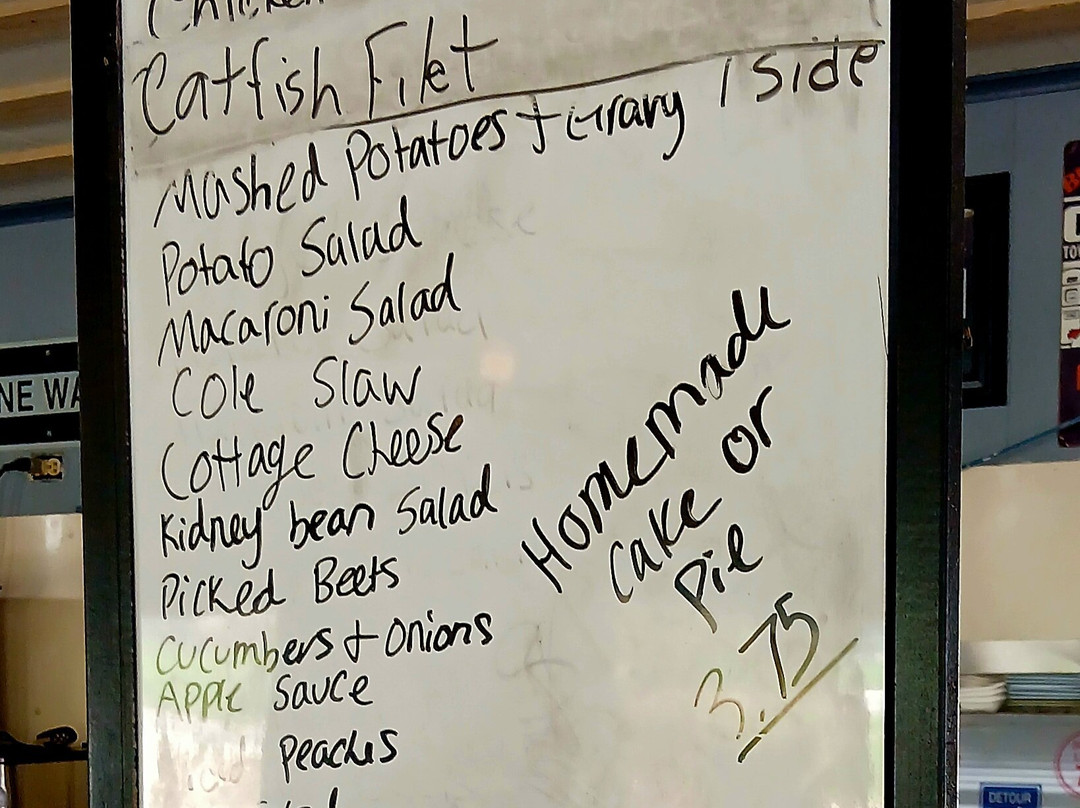 Chicken
Catfish Filet
1 Side
Mashed Potatoes + Gravy
Potato Salad
Macaroni Salad
Cole Slaw
Cottage Cheese
Kidney bean Salad
Picked Beets
Cucumbers + Onions
Apple Sauce
Peaches
Homemade
Cake or
Pie
3.75
NE WA
DETOUR